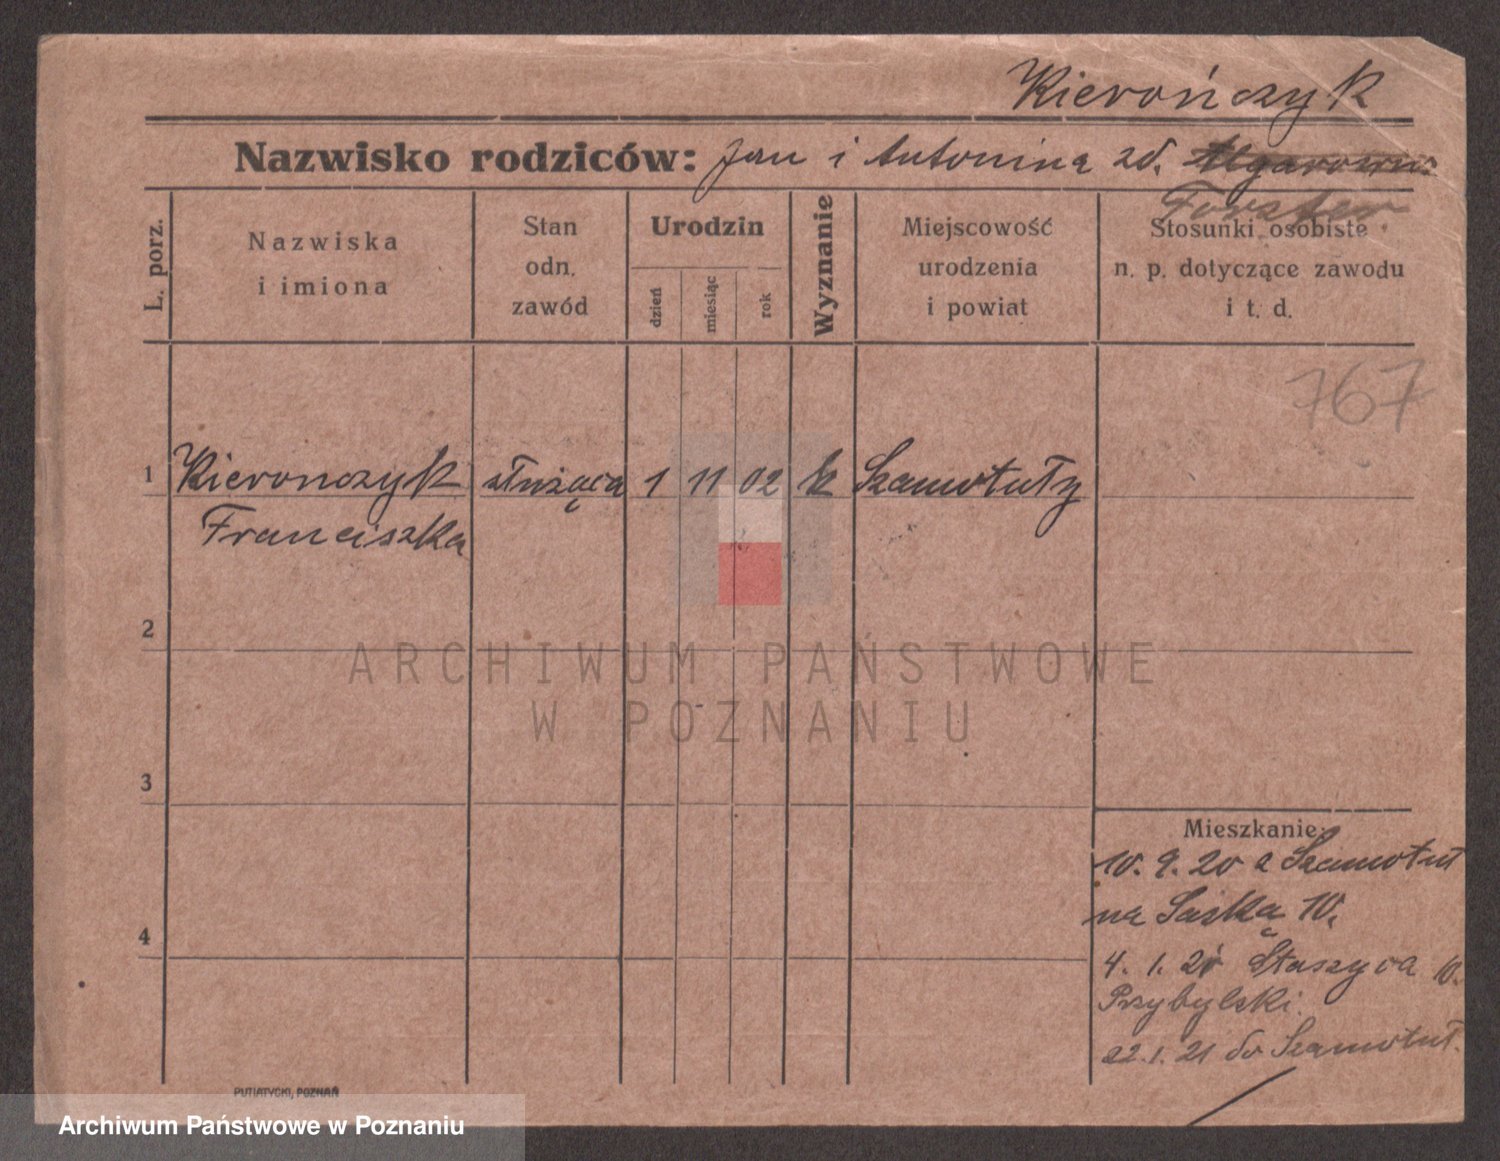 Kierończyk
Nazwisko rodziców: Jan i Antonina zd.
Forster
L. porz.
Nazwiska
i imiona
Stan
odn.
zawód
Urodzin
dzień
miesiąc
rok
Wyznanie
Miejscowość
urodzenia
i powiat
Stosunki osobiste
n. p. dotyczące zawodu
i t. d.
767
1 Kieronczyk służąca 1 11 02 k Szamotuły
Franciszka
2
3
4
ARCHIWUM PAŃSTWOWE
W POZNANIU
Mieszkanie:
10. 9. 20 z Szamotuł
na Saską 10.
4. 1. 21 Staszyca 10.
Przybylski.
22. 1. 21 do Szamotuł.
PUTIATYCKI, POZNAŃ
Archiwum Państwowe w Poznaniu